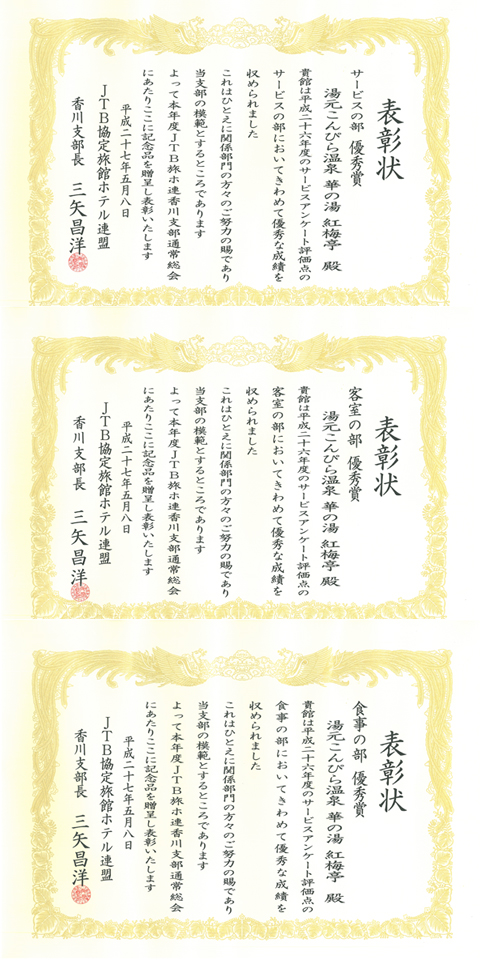 表彰状
サービスの部 優秀賞
湯元こんぴら温泉 華の湯 紅梅亭 殿
貴館は平成二十六年度のサービスアンケート評価点の
サービスの部においてきわめて優秀な成績を
収められました
これはひとえに関係部門の方々のご努力の賜であり
当支部の模範とするところであります
よって本年度JTB旅ホ連香川支部通常総会
にあたりここに記念品を贈呈し表彰いたします
平成二十七年五月八日
JTB協定旅館ホテル連盟
香川支部長 三矢昌洋
表彰状
客室の部 優秀賞
湯元こんぴら温泉 華の湯 紅梅亭 殿
貴館は平成二十六年度のサービスアンケート評価点の
客室の部においてきわめて優秀な成績を
収められました
これはひとえに関係部門の方々のご努力の賜であり
当支部の模範とするところであります
よって本年度JTB旅ホ連香川支部通常総会
にあたりここに記念品を贈呈し表彰いたします
平成二十七年五月八日
JTB協定旅館ホテル連盟
香川支部長 三矢昌洋
表彰状
食事の部 優秀賞
湯元こんぴら温泉 華の湯 紅梅亭 殿
貴館は平成二十六年度のサービスアンケート評価点の
食事の部においてきわめて優秀な成績を
収められました
これはひとえに関係部門の方々のご努力の賜であり
当支部の模範とするところであります
よって本年度JTB旅ホ連香川支部通常総会
にあたりここに記念品を贈呈し表彰いたします
平成二十七年五月八日
JTB協定旅館ホテル連盟
香川支部長 三矢昌洋